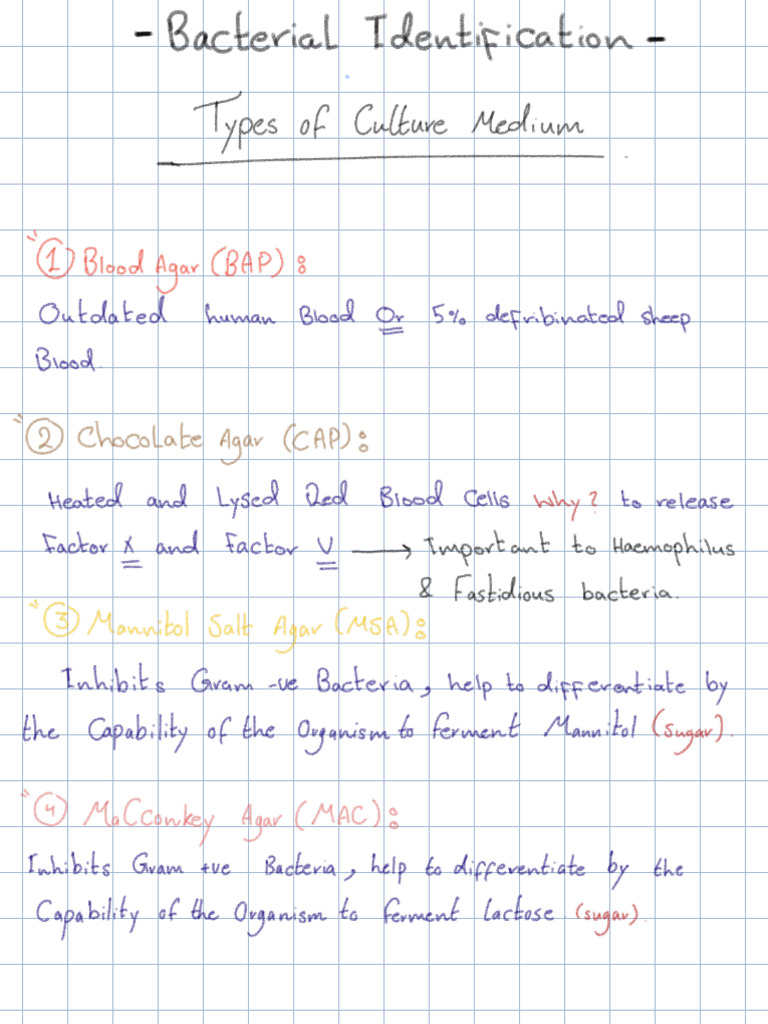 - Bacterial Identification -
Types of Culture Medium
① Blood Agar (BAP):
Outdated human Blood Or 5% defribinated sheep
Blood.
② Chocolate Agar (CAP):
Heated and Lysed Red Blood Cells Why? to release
Factor X and Factor V → Important to Haemophilus
& Fastidious bacteria.
③ Mannitol Salt Agar (MSA):
Inhibits Gram -ve Bacteria, help to differentiate by
the Capability of the Organism to ferment Mannitol (sugar).
④ MaCconkey Agar (MAC):
Inhibits Gram +ve Bacteria, help to differentiate by the
Capability of the Organism to ferment lactose (sugar).